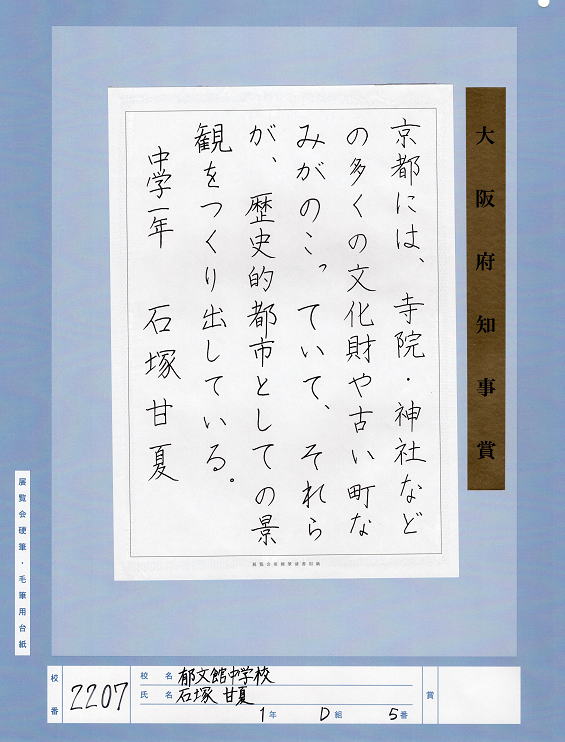 大阪府知事賞
京都には、寺院・神社など
の多くの文化財や古い町な
みがのこっていて、それら
が、歴史的都市としての景
観をつくり出している。
中学一年 石塚甘夏
展覧会硬筆・毛筆用台紙
校番 2207
校名 郁文館中学校
氏名 石塚 甘夏
1年 D組 5番
賞